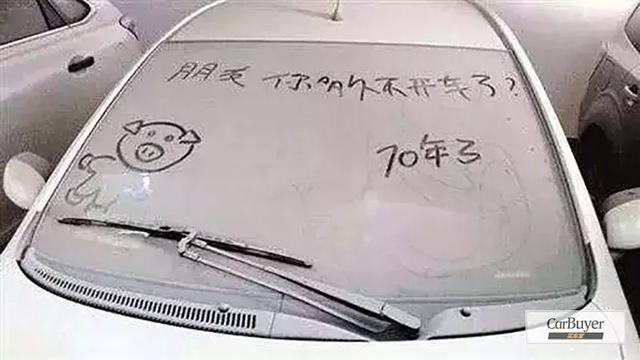 朋友 你多久不开车了?
70年了
CarBuyer